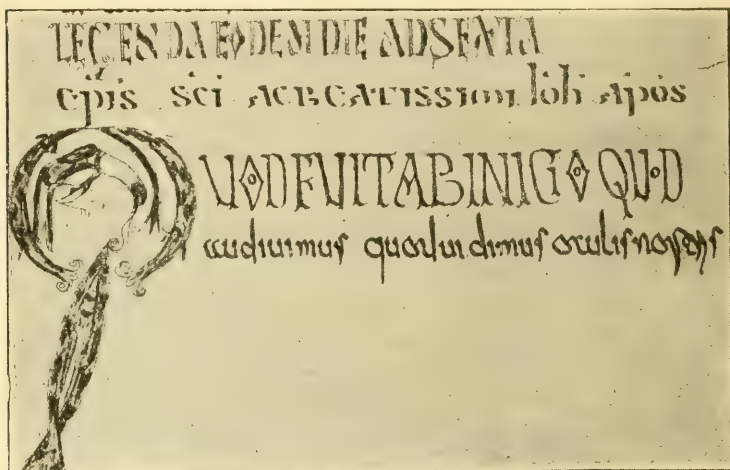 LEGENDA EODEM DIE AD SEXTA
epis sci ac beatissimi iohi apos
QUOD FUIT AB INIGO QUOD
audiuimus quod uidimus oculis nostris